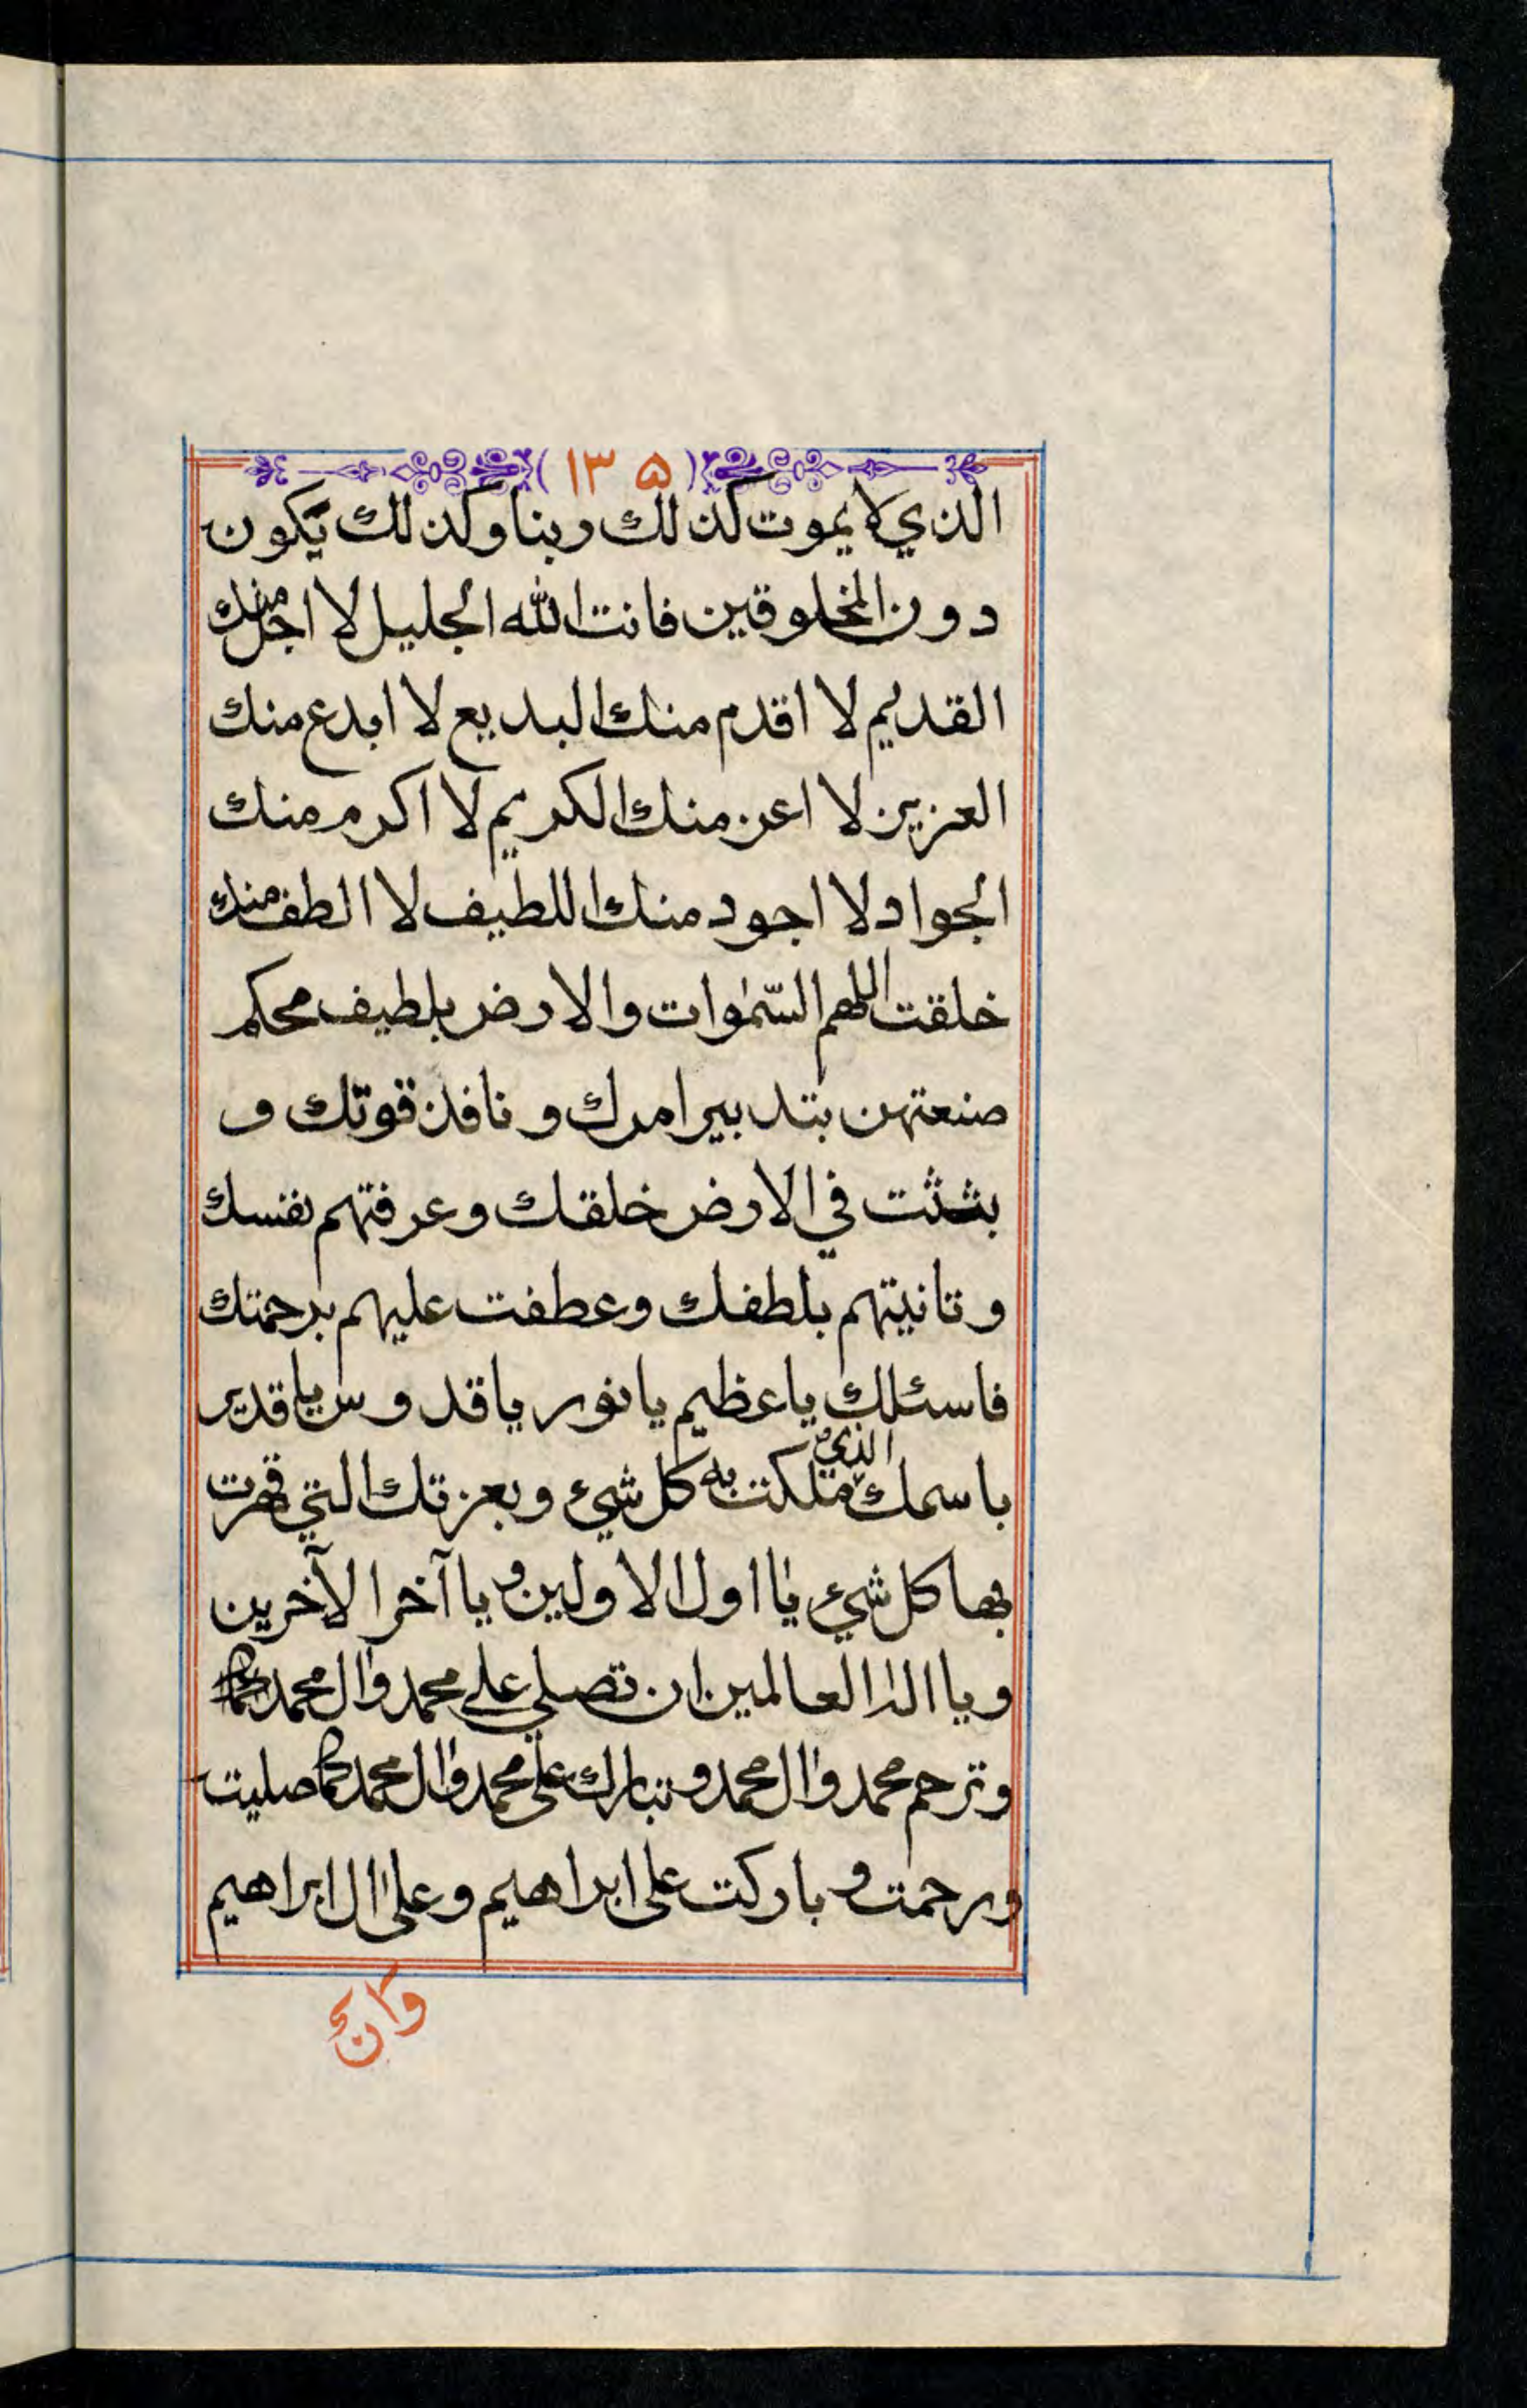 (١٣٥)
الذي لا يموت كذلك ربنا وكذلك يكون
دون المخلوقين فانت الله الجليل لا اجل منك
القديم لا اقدم منك البديع لا ابدع منك
العزيز لا اعز منك الكريم لا اكرم منك
الجواد لا اجود منك اللطيف لا الطف منك
خلقت اللهم السّمٰوات والارض بلطيف محكم
صنعتهن بتدبير امرك و نافذ قوتك و
بثثت في الارض خلقك وعرفتهم نفسك
و تانيتهم بلطفك وعطفت عليهم برحمتك
فاسئلك يا عظيم يا نور يا قدوس يا قدير
باسمك الذي ملكت به كل شيء وبعزتك التي قهرت
بها كل شيء يا اول الاولين و يا آخر الآخرين
و يا اله العالمين ان تصلي على محمد وال محمد
وترحم محمد وال محمد و تبارك على محمد وال محمد كما صليت
ورحمت و باركت على ابراهيم وعلى ال ابراهيم